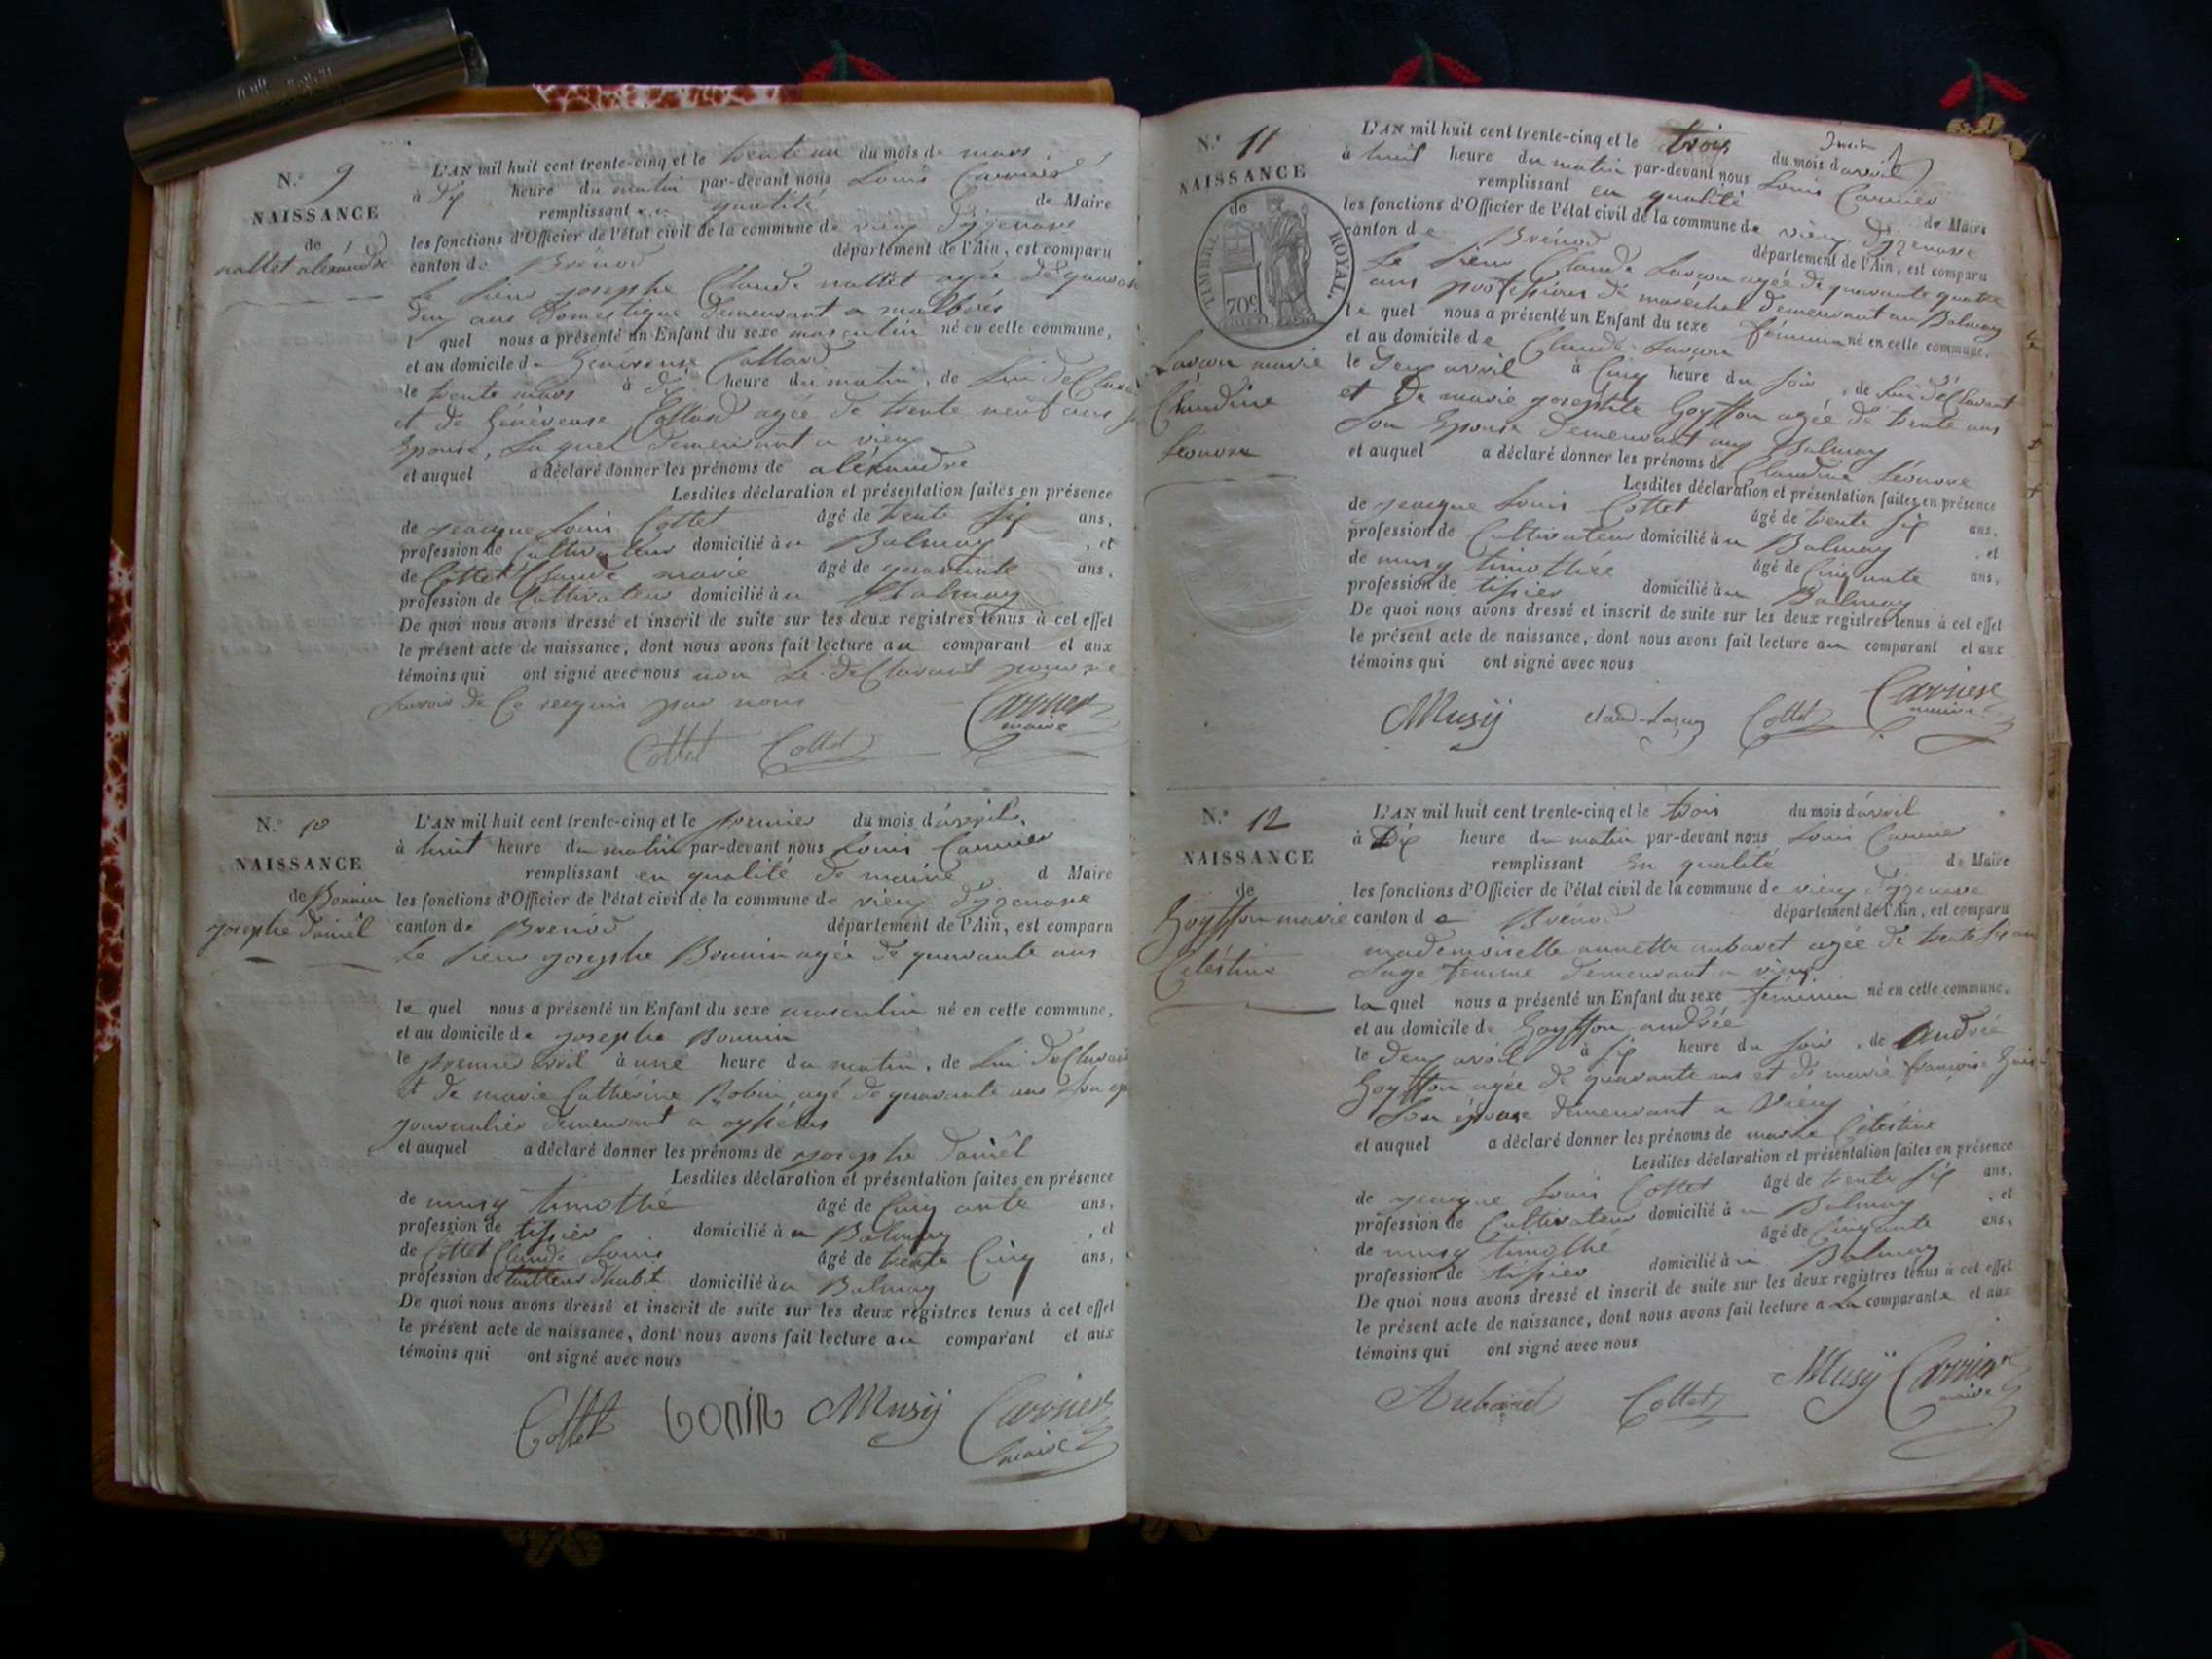 N.º 9
NAISSANCE
de
nallet aléxandre
L'AN mil huit cent trente-cinq et le trente un du mois de mars
à dix heure du matin par-devant nous Louis Carrier
remplissant en qualité de Maire
les fonctions d'Officier de l'état civil de la commune de vieux d'yzenave
canton de Brénod département de l'Ain, est comparu
le sieur josephe Claude nallet agée de quaran
deux ans domestique demeurant a
l quel nous a présenté un Enfant du sexe masculin né en cette commune,
et au domicile de Généreuse Collard
le trente mars à dix heure du matin, de lui déClara
et de Généreuse Collard agée de trente neuf ans
Epouse, la quel demeurant a vieux
et auquel a déclaré donner les prénoms de aléxandre
Lesdites déclaration et présentation faites en présence
de jeacque Louis Cottet âgé de trente six ans,
profession de Cultivateur domicilié à u Balmay , et
de Cottet Claude marie âgé de quarante ans,
profession de Cultivateur domicilié à u Balmay
De quoi nous avons dressé et inscrit de suite sur les deux registres tenus à cet effet
le présent acte de naissance, dont nous avons fait lecture au comparant et aux
témoins qui ont signé avec nous non le déClarant pour ne
savoir de Ce requis par nous
Carrier
maire
Cottet Cottet
N.º 10
NAISSANCE
de Bonnin
josephe daniél
L'AN mil huit cent trente-cinq et le premier du mois d'avril
à huit heure du matin par-devant nous Louis Carrier
remplissant en qualité de maire d Maire
les fonctions d'Officier de l'état civil de la commune de vieux d'yzenave
canton de Brénod département de l'Ain, est comparu
le sieur josephe Bonnin agée de quarante ans
le quel nous a présenté un Enfant du sexe masculin né en cette commune,
et au domicile de josephe Bonnin
le premier avril à une heure du matin, de lui déClarant
et de marie Cathérine Robin agé de quarante ans son ep
journalier demeurant a
et auquel a déclaré donner les prénoms de josephe daniél
Lesdites déclaration et présentation faites en présence
de musy timothé âgé de Cinq ante ans,
profession de tissier domicilié à u Balmay , et
de Cottet Claude Louis âgé de trente Cinq ans,
profession de tailleur d'habit domicilié à u Balmay
De quoi nous avons dressé et inscrit de suite sur les deux registres tenus à cet effet
le présent acte de naissance, dont nous avons fait lecture au comparant et aux
témoins qui ont signé avec nous
Cottet bonin Musÿ Carrier
maire
N.º 11
NAISSANCE
de
TIMBRE ROYAL.
70c
Lavcon marie
Claudine
Léonore
L'AN mil huit cent trente-cinq et le trois du mois d'avril
à huit heure du matin par-devant nous Louis Carrier
remplissant en qualité de Maire
les fonctions d'Officier de l'état civil de la commune de vieux d'yzenave
canton de Brénod département de l'Ain, est comparu
le sieur Claude agée de quarante quatre
ans profession de marechal demeurant au Balmay
le quel nous a présenté un Enfant du sexe féminin né en cette commune,
et au domicile de Claude
le deux avril à Cinq heure du soir, de lui déClarant
et de marie josephte Goyffon agée de trente ans
son Epouse demeurant aux Balmay
et auquel a déclaré donner les prénoms de Claudine Léonore
Lesdites déclaration et présentation faites en présence
de jeacque Louis Cottet âgé de trente six ans,
profession de Cultivateur domicilié à u Balmay , et
de musy timothée âgé de Cinq ante ans,
profession de tissier domicilié à u Balmay
De quoi nous avons dressé et inscrit de suite sur les deux registres tenus à cet effet
le présent acte de naissance, dont nous avons fait lecture au comparant et aux
témoins qui ont signé avec nous
Musÿ Cottet Carrier
maire
N.º 12
NAISSANCE
de
Goyffon marie
Céléstine
L'AN mil huit cent trente-cinq et le trois du mois d'avril
à Dix heure du matin par-devant nous Louis Carrier
remplissant En qualité de Maire
les fonctions d'Officier de l'état civil de la commune de vieux d'yzenave
canton d e Brénod département de l'Ain, est comparu
mademoiselle annette aubaret agée de trente six ans
sage femme demeurant a vieux
la quel nous a présenté un Enfant du sexe féminin né en cette commune,
et au domicile de Goyffon andrée
le deux avril à six heure du soir, de andrée
Goyffon agée de quarante ans et de marie françoise
son épouse demeurant a Vieux
et auquel a déclaré donner les prénoms de marie Céléstine
Lesdites déclaration et présentation faites en présence
de jeacque Louis Cottet âgé de trente six ans,
profession de Cultivateur domicilié à u Balmay , et
de musy timothé âgé de Cinq ante ans,
profession de tissier domicilié à u Balmay
De quoi nous avons dressé et inscrit de suite sur les deux registres tenus à cet effet
le présent acte de naissance, dont nous avons fait lecture a La comparante et aux
témoins qui ont signé avec nous
Aubaret Cottet Musÿ Carrier
maire